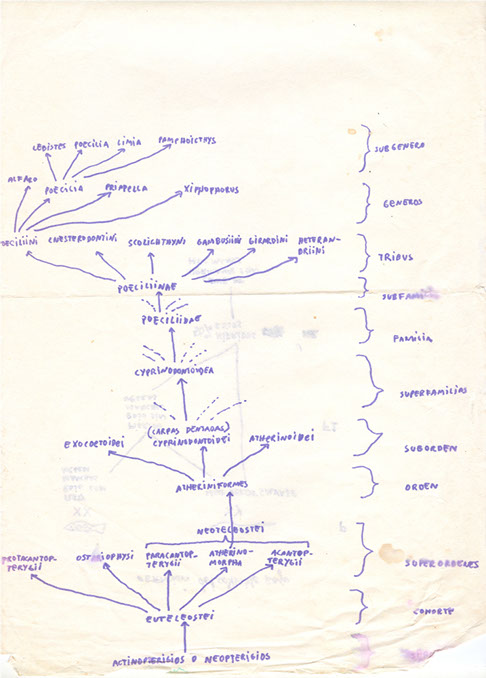 LEBISTES POECILIA LIMIA PAMPHOICTHYS
SUBGENERO
ALFARO POECILIA PRIAPELLA XIPHOPHORUS
GENEROS
POECILIINI CNESTERODONTINI SCOLICHTHYNI GAMBUSIINI GIRARDINI HETERAN-
DRIINI
TRIBUS
POECILIINAE
SUBFAMI
POECILIIDAE
FAMILIA
CYPRINODONTOIDEA
SUPERFAMILIAS
(CARPAS DENTADAS)
EXOCOETOIDEI CYPRINODONTOIDEI ATHERINOIDEI
SUBORDEN
ATHERINIFORMES
ORDEN
NEOTELEOSTEI
PROTACANTOP-
TERYGII
OSTARIOPHYSI
PARACANTOP-
TERYGII
ATHERINO-
MORPHA
ACANTOP-
TERYGII
SUPERORDENES
EUTELEOSTEI
COHORTE
ACTINOPTERIGIOS O NEOPTERIGIOS